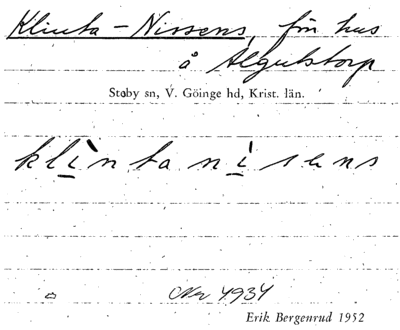 Klinta-Nissens, frn hus
å Algutstorp
Stoby sn, V. Göinge hd, Krist. län.
klìnta nísens
Nr 4934
Erik Bergenrud 1952